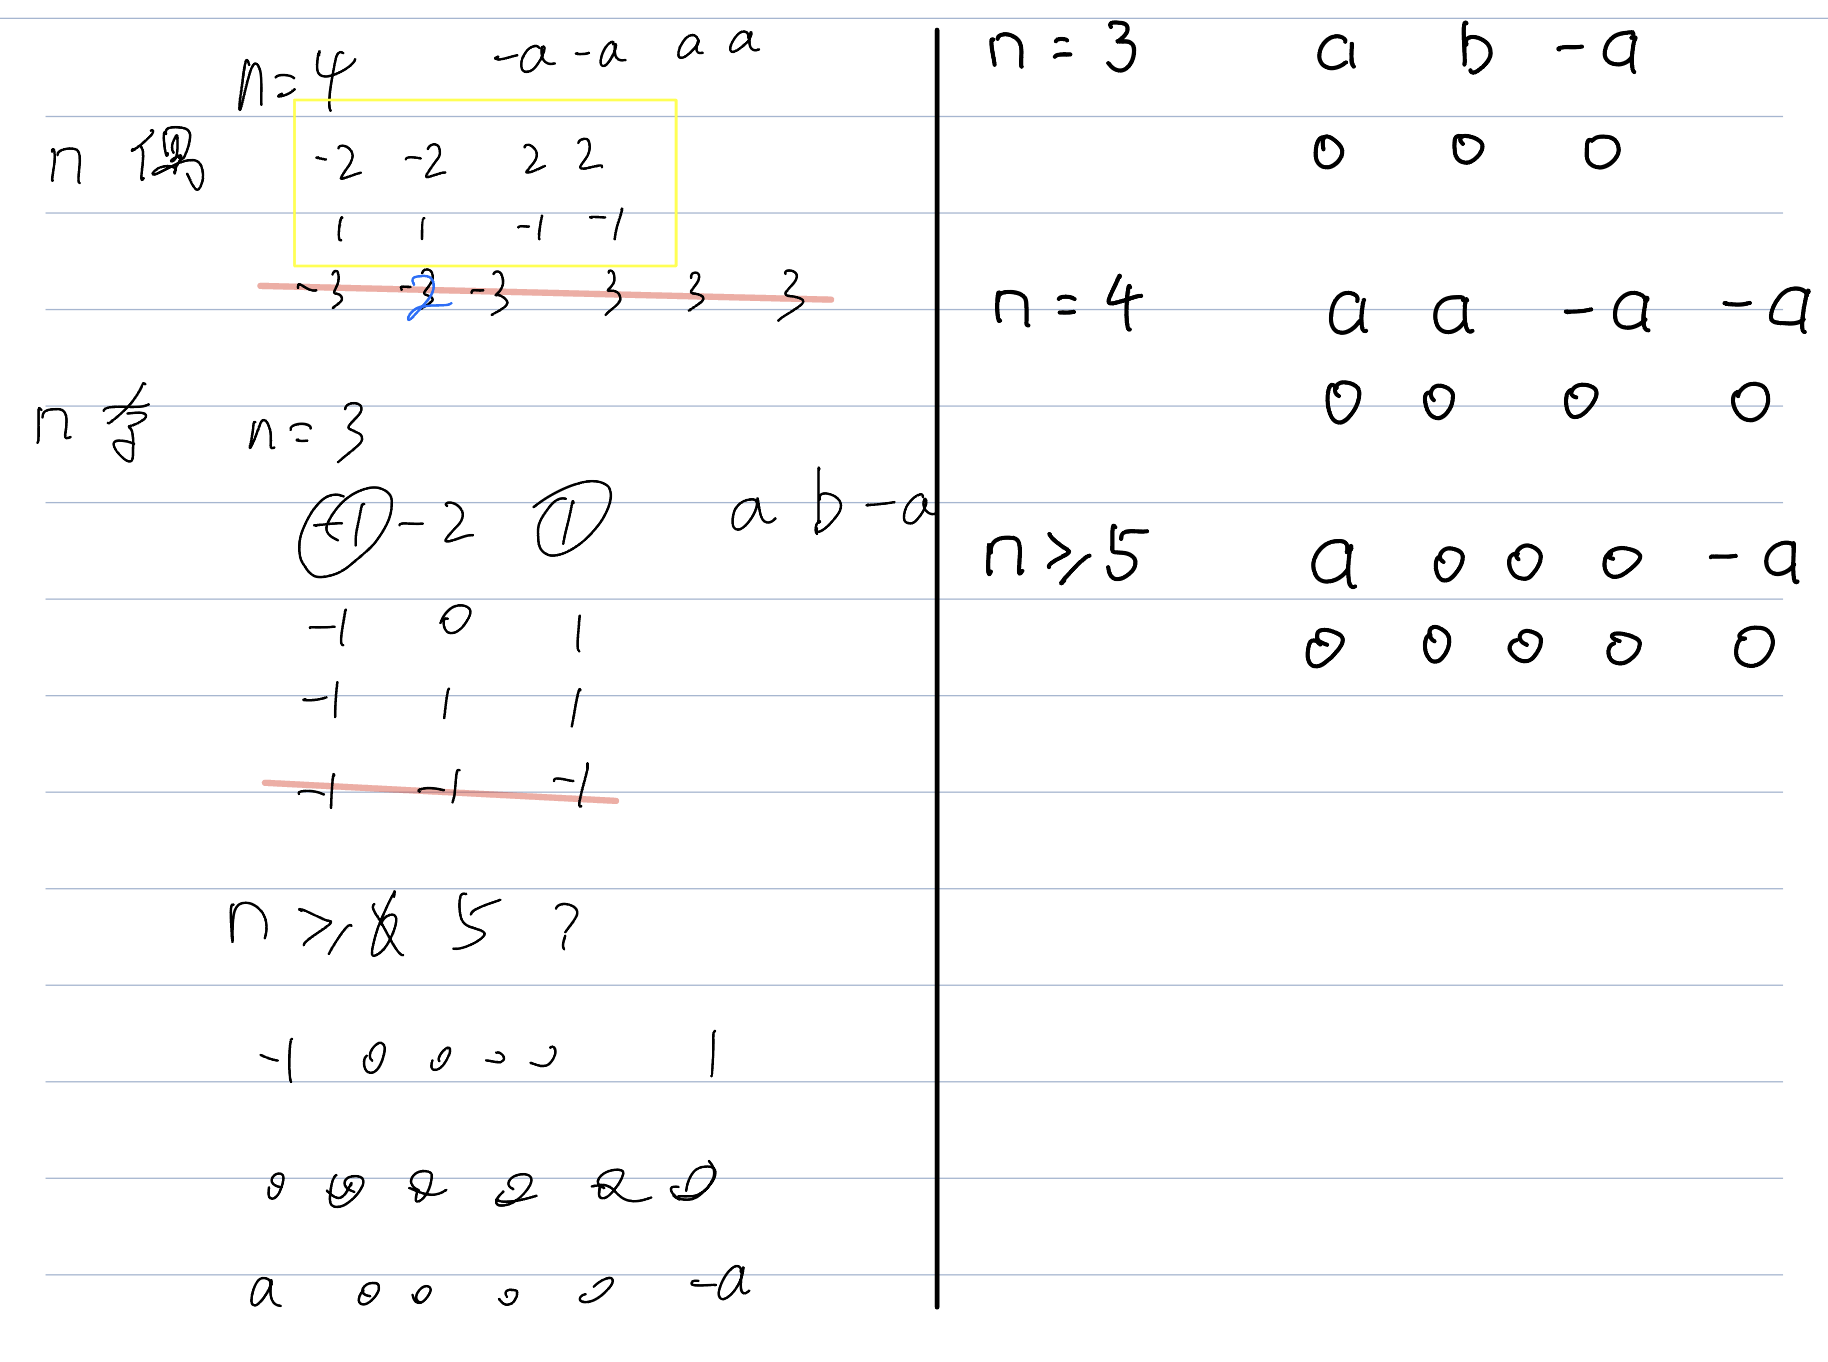 n=4 -a -a a a
n 偶 -2 -2 2 2
1 1 -1 -1
-3 -3 3 3 3
n 奇 n=3
-1 -2 1 a b -a
-1 0 1
-1 1 1
-1 -1 -1
n ≥ 5 ?
-1 0 0 0 0 1
a 0 0 0 0 -a
n = 3 a b -a
0 0 0
n = 4 a a -a -a
0 0 0 0
n ≥ 5 a 0 0 0 -a
0 0 0 0 0